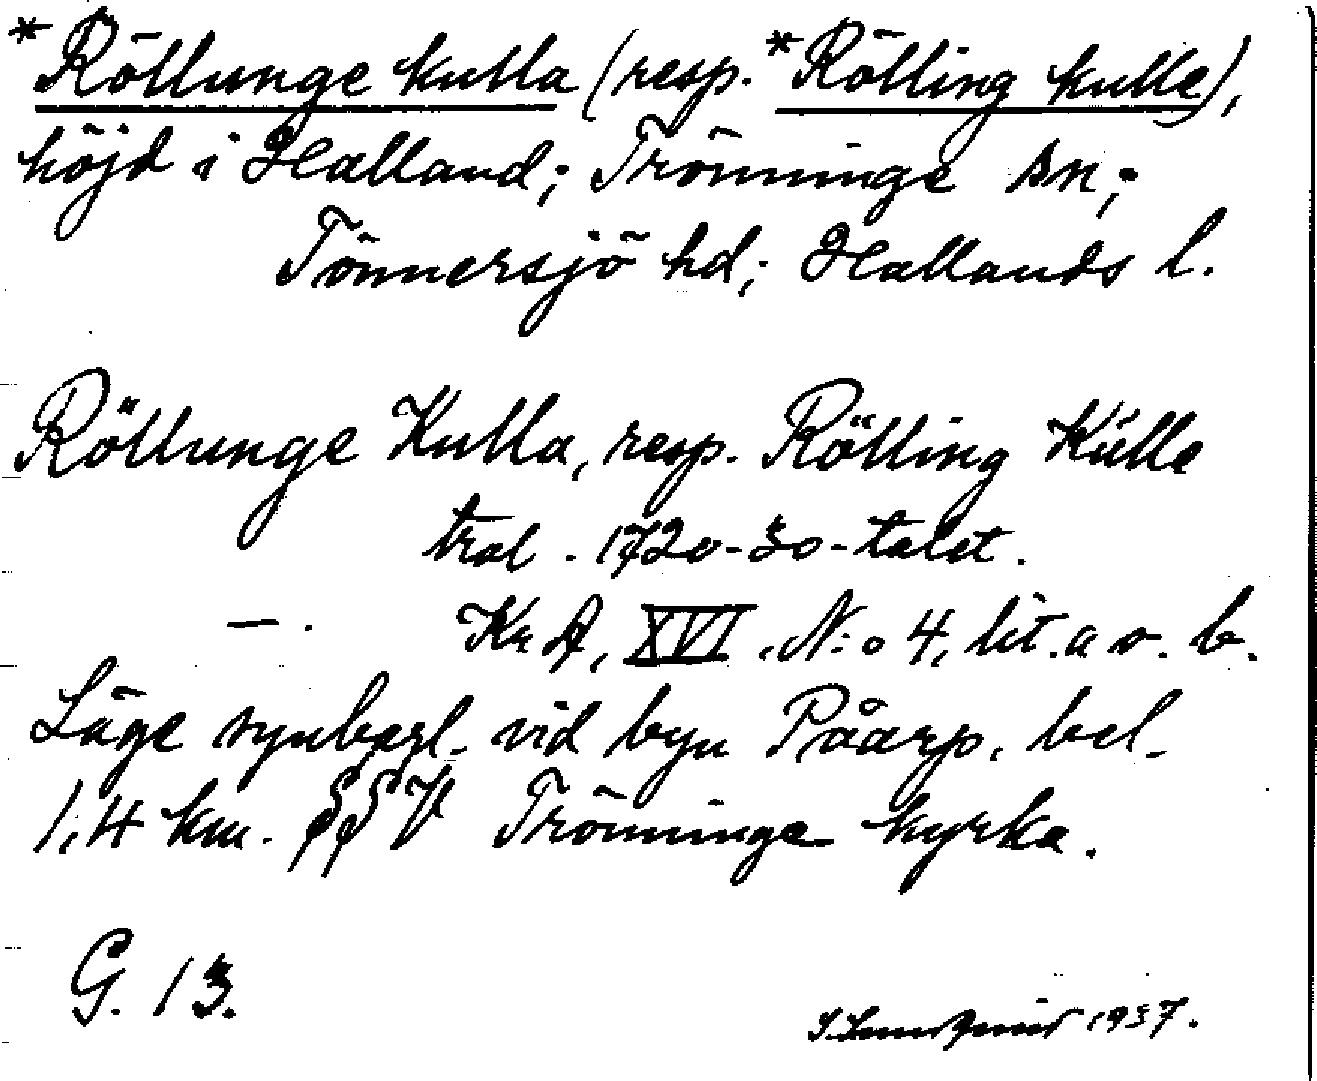 *Röllunge kulla (resp. *Rölling kulle),
höjd i Halland; Trönninge sn;
Tönnersjö hd; Hallands l.
Röllunge Kulla, resp. Rölling Külle
trol. 1720-30-talet.
— . KrA, XVI. N:o 4, lit. a o. b.
Läge synbarl. vid byn Påarp, bel.
1,4 km. SSV Trönninge kyrka.
G. 13.
1937.